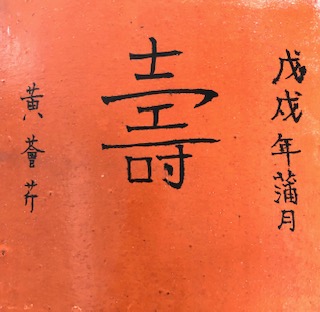 戊戌年蒲月
壽
黃薈芹